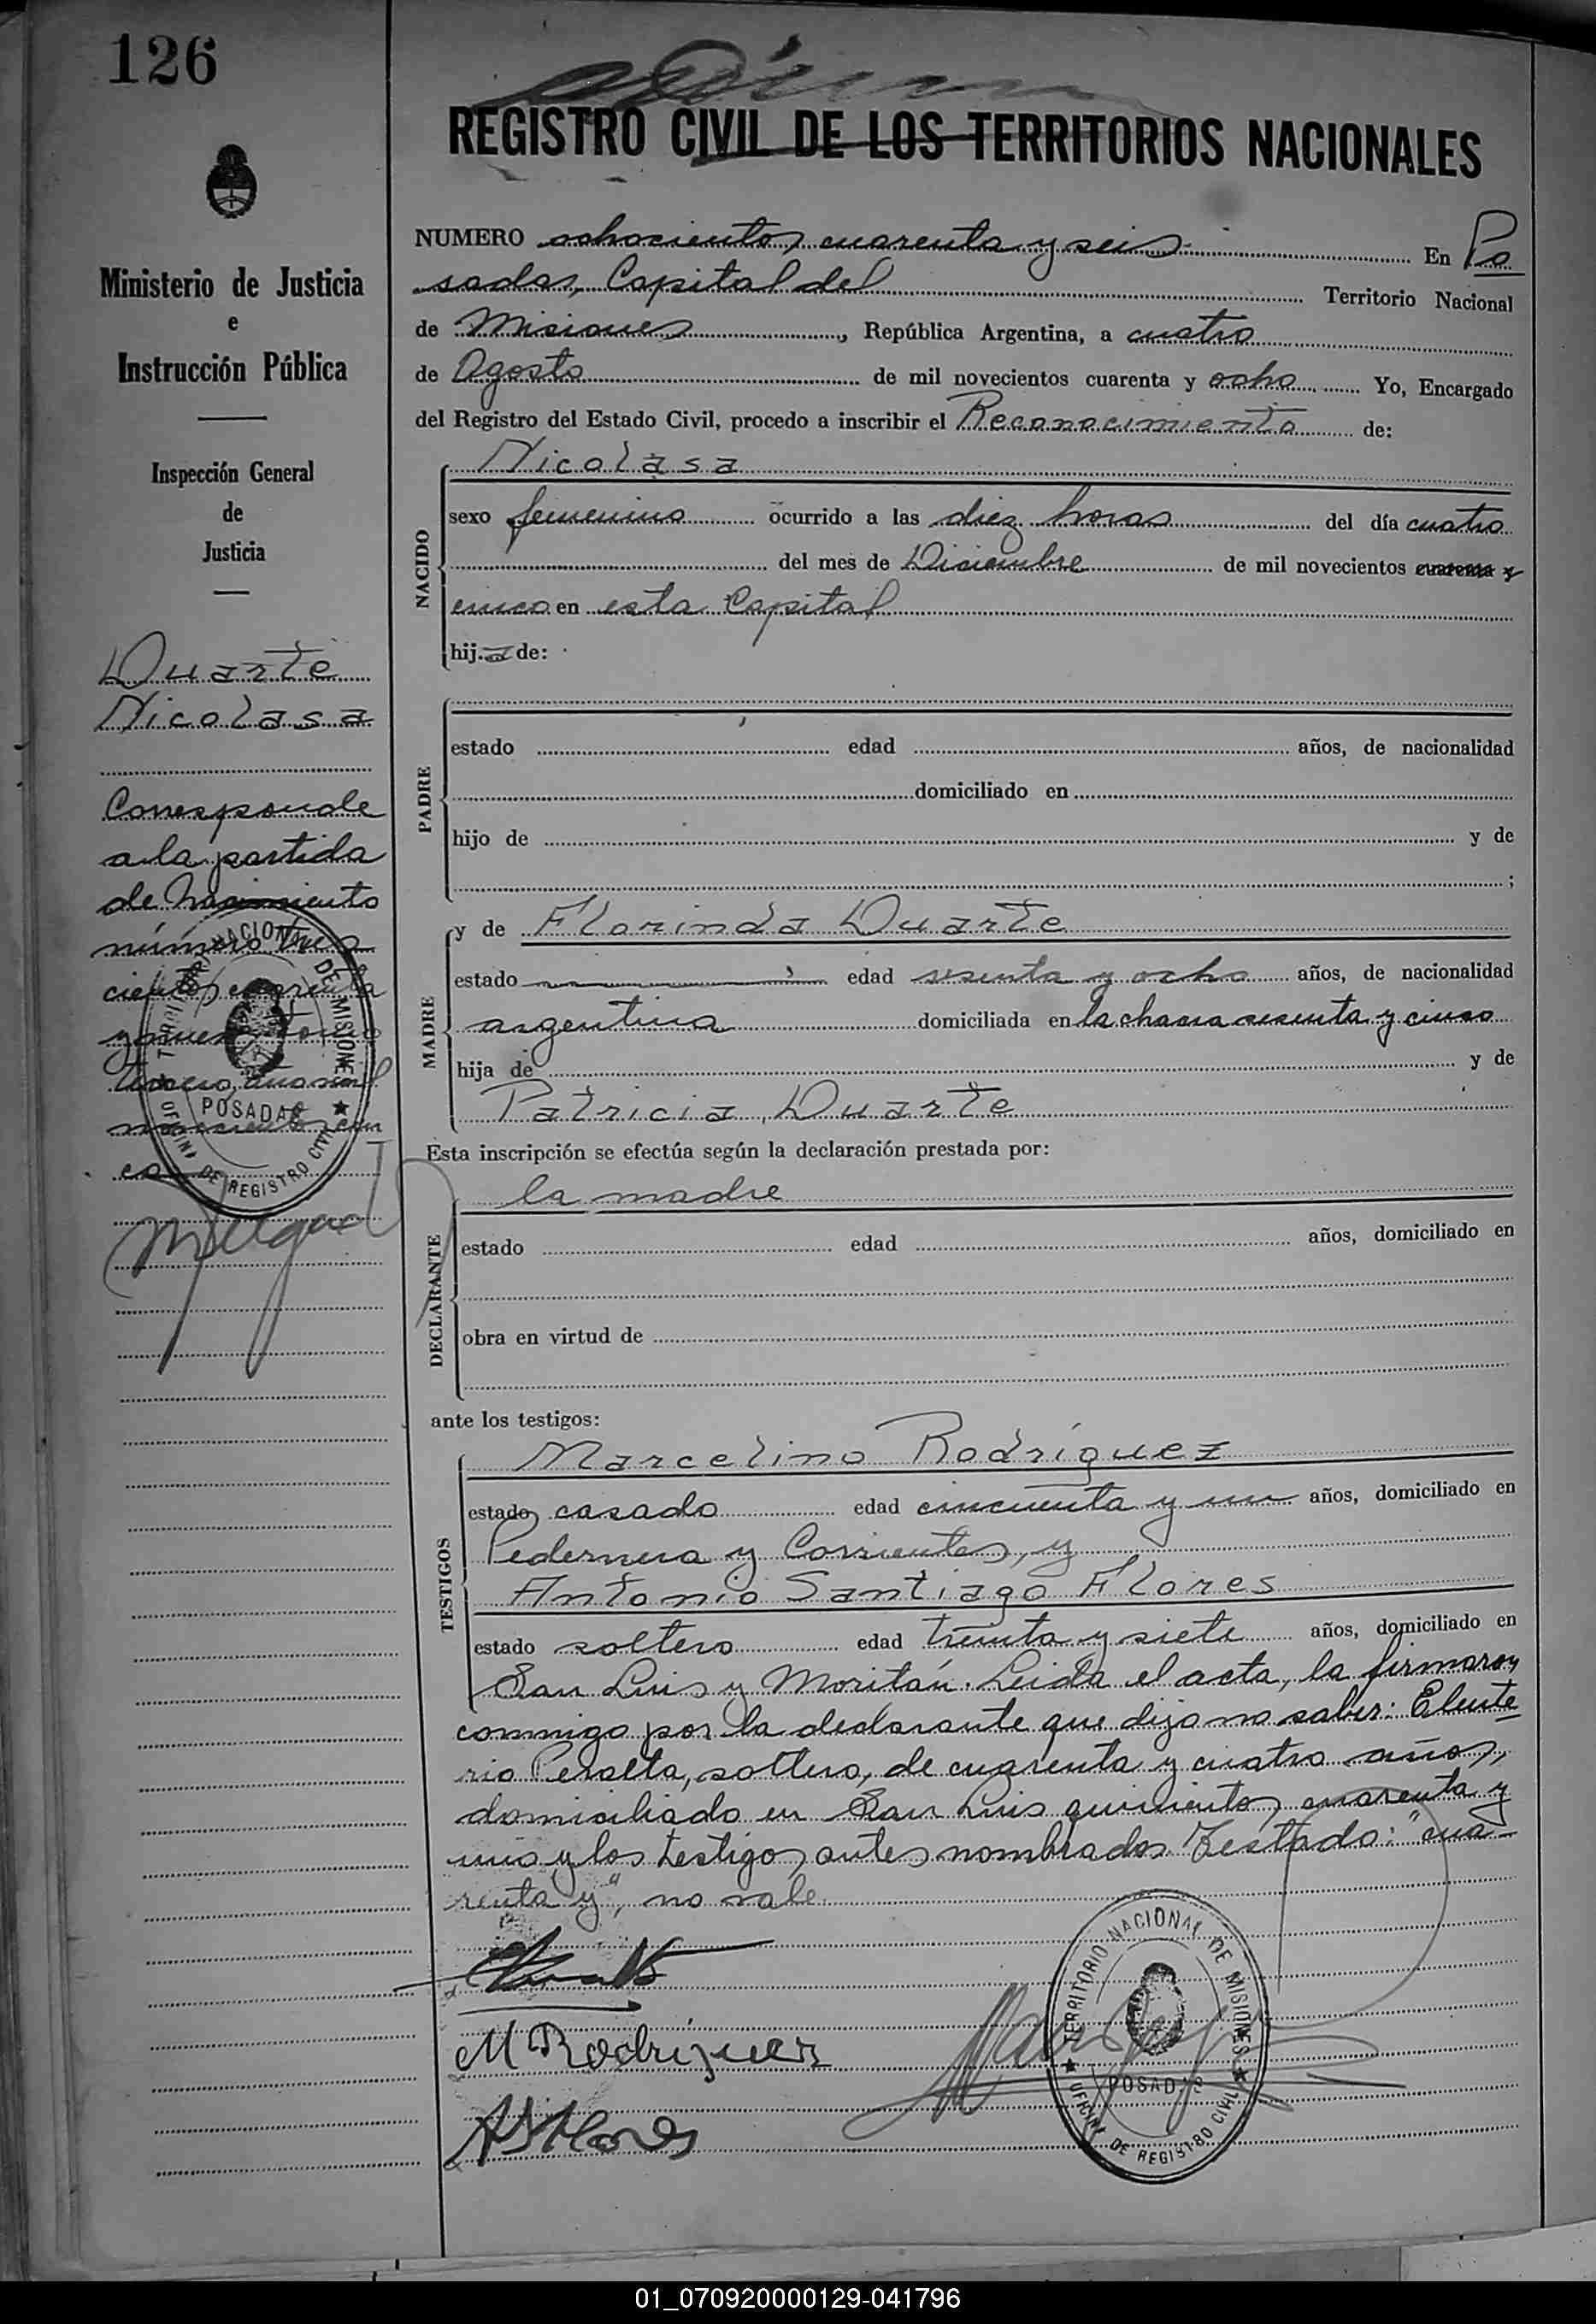 126
REGISTRO CIVIL DE LOS TERRITORIOS NACIONALES
Ministerio de Justicia
e
Instrucción Pública
Inspección General
de
Justicia
Duarte
Nicolasa
Corresponde
a la partida
de Nacimiento
número tres
cientos cuarenta
y nueve tomo
tercero, año mil
novecientos cin
co
NUMERO ochocientos cuarenta y seis En Po
sadas, Capital del Territorio Nacional
de Misiones, República Argentina, a cuatro
de Agosto de mil novecientos cuarenta y ocho Yo, Encargado
del Registro del Estado Civil, procedo a inscribir el Reconocimiento de:
NACIDO
Nicolasa
sexo femenino ocurrido a las diez horas del día cuatro
del mes de Diciembre de mil novecientos cuarenta y
cinco en esta Capital
hij a de:
PADRE
estado edad años, de nacionalidad
domiciliado en
hijo de y de
;
MADRE
y de Florinda Duarte
estado edad sesenta y ocho años, de nacionalidad
argentina domiciliada en la chacra sesenta y cinco
hija de y de
Patricia Duarte
Esta inscripción se efectúa según la declaración prestada por:
DECLARANTE
la madre
estado edad años, domiciliado en
obra en virtud de
ante los testigos:
TESTIGOS
Marcelino Rodríguez
estado casado edad cincuenta y un años, domiciliado en
Pedernera y Corrientes, y
Antonio Santiago Flores
estado soltero edad treinta y siete años, domiciliado en
San Luis y Moritán. Leida el acta, la firmaron
conmigo por la declarante que dijo no saber: Eleute
rio Peralta, soltero, de cuarenta y cuatro años,
domiciliado en San Luis quinientos cuarenta y
uno y los testigos antes nombrados. Testado: "cua
renta y", no vale.
M Rodriguez
A S Flores
TERRITORIO NACIONAL DE MISIONES
POSADAS
OFICINA DE REGISTRO CIVIL
TERRITORIO NACIONAL DE MISIONES
POSADAS
OFICINA DE REGISTRO CIVIL
01_070920000129-041796